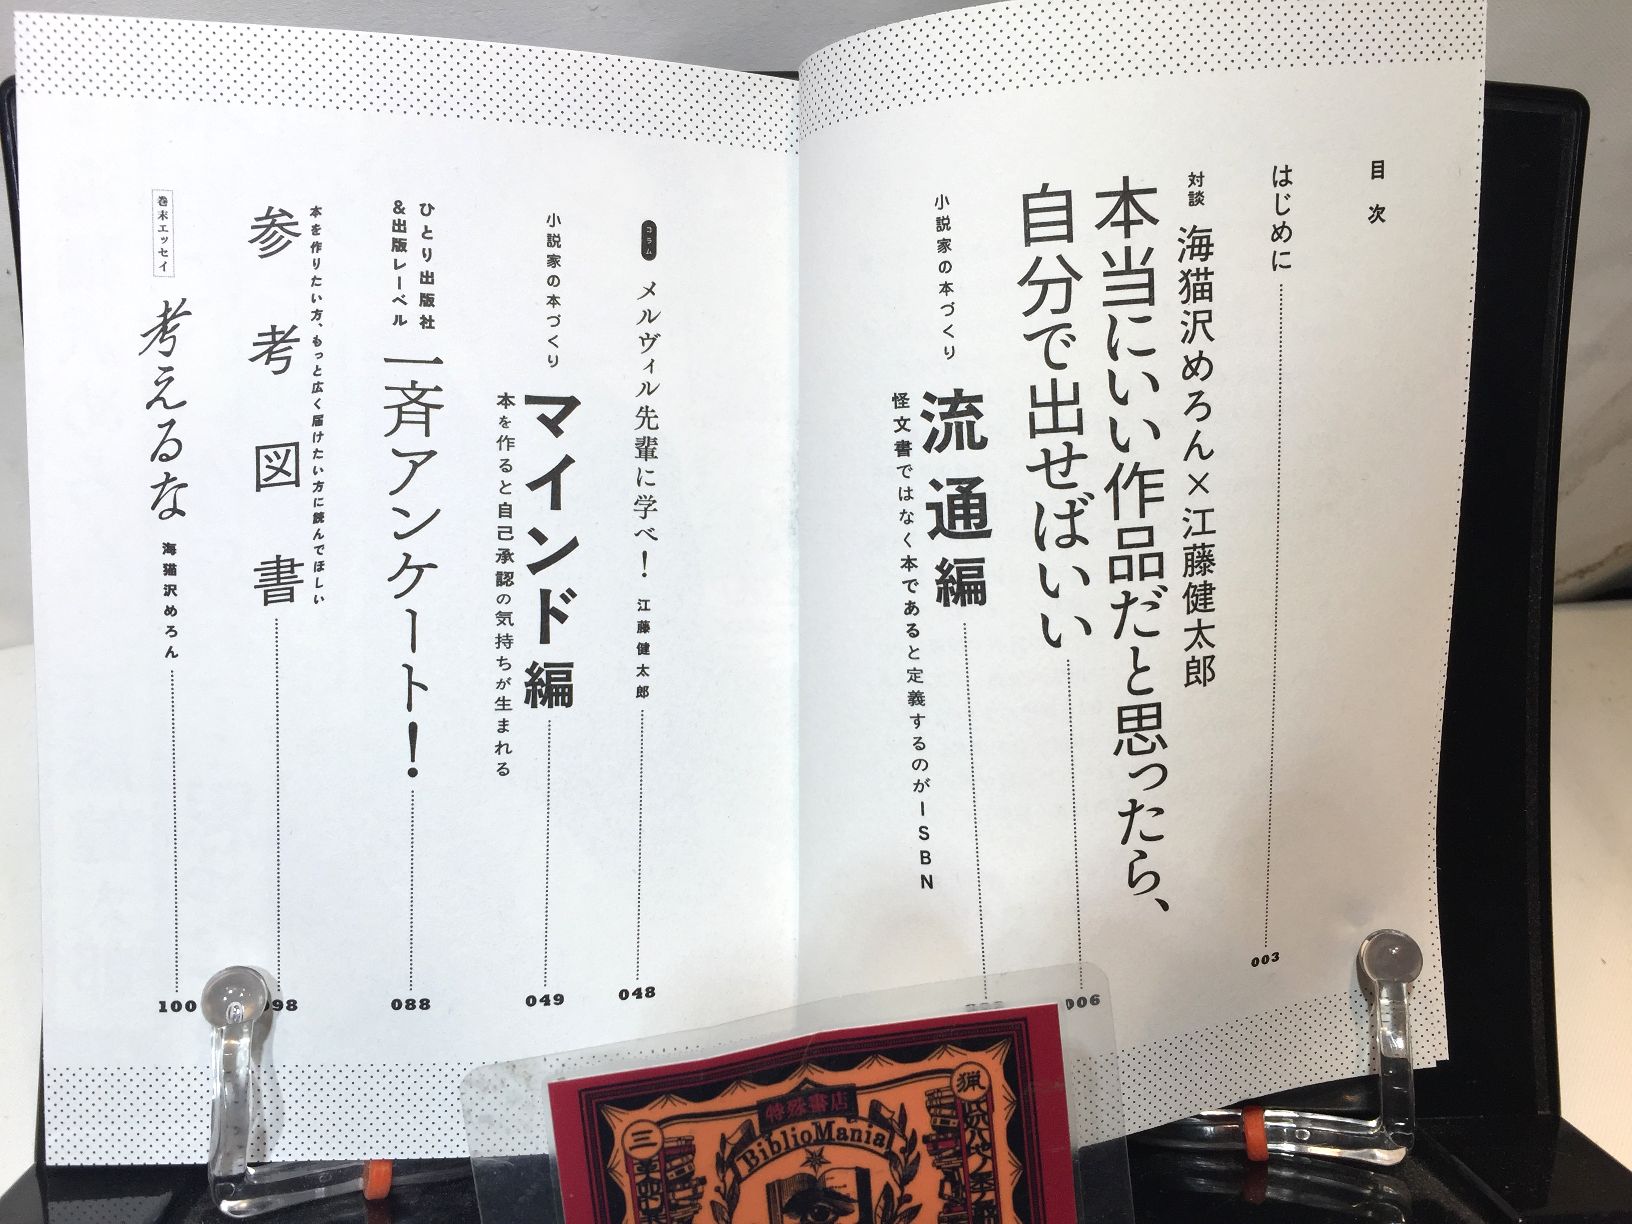 目次
はじめに
003
対談 海猫沢めろん×江藤健太郎
本当にいい作品だと思ったら、
自分で出せばいい
006
小説家の本づくり
流通編
怪文書ではなく本であると定義するのがISBN
コラム
メルヴィル先輩に学べ! 江藤健太郎
048
小説家の本づくり
マインド編
本を作ると自己承認の気持ちが生まれる
049
ひとり出版社
&出版レーベル
一斉アンケート!
088
本を作りたい方、もっと広く届けたい方に読んでほしい
参考図書
098
巻末エッセイ
考えるな 海猫沢めろん
100
特殊書店
BiblioMania
猟
三